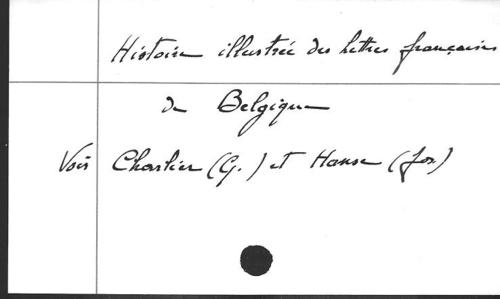 Histoire illustrée des lettres françaises
de Belgique
Voir Charlier (G.) et Hanse (Jos.)